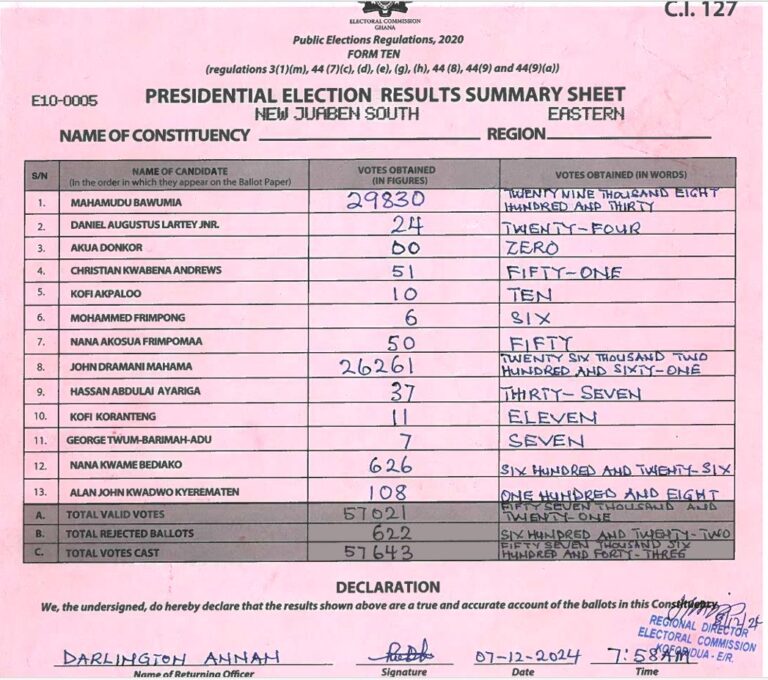 C.I. 127
ELECTORAL COMMISSION
GHANA
Public Elections Regulations, 2020
FORM TEN
(regulations 3(1)(m), 44 (7)(c), (d), (e), (g), (h), 44 (8), 44(9) and 44(9)(a))
E10-0005 PRESIDENTIAL ELECTION RESULTS SUMMARY SHEET
NEW JUABEN SOUTH EASTERN
NAME OF CONSTITUENCY REGION
S/N NAME OF CANDIDATE (In the order in which they appear on the Ballot Paper) VOTES OBTAINED (IN FIGURES) VOTES OBTAINED (IN WORDS)
1. MAHAMUDU BAWUMIA 29830 TWENTY NINE THOUSAND EIGHT HUNDRED AND THIRTY
2. DANIEL AUGUSTUS LARTEY JNR. 24 TWENTY-FOUR
3. AKUA DONKOR 00 ZERO
4. CHRISTIAN KWABENA ANDREWS 51 FIFTY-ONE
5. KOFI AKPALOO 10 TEN
6. MOHAMMED FRIMPONG 6 SIX
7. NANA AKOSUA FRIMPOMAA 50 FIFTY
8. JOHN DRAMANI MAHAMA 26261 TWENTY SIX THOUSAND TWO HUNDRED AND SIXTY-ONE
9. HASSAN ABDULAI AYARIGA 37 THIRTY-SEVEN
10. KOFI KORANTENG 11 ELEVEN
11. GEORGE TWUM-BARIMAH-ADU 7 SEVEN
12. NANA KWAME BEDIAKO 626 SIX HUNDRED AND TWENTY-SIX
13. ALAN JOHN KWADWO KYEREMATEN 108 ONE HUNDRED AND EIGHT
A. TOTAL VALID VOTES 57021 FIFTY SEVEN THOUSAND AND TWENTY-ONE
B. TOTAL REJECTED BALLOTS 622 SIX HUNDRED AND TWENTY-TWO
C. TOTAL VOTES CAST 57643 FIFTY SEVEN THOUSAND SIX HUNDRED AND FORTY-THREE
DECLARATION
We, the undersigned, do hereby declare that the results shown above are a true and accurate account of the ballots in this Constituency.
REGIONAL DIRECTOR
ELECTORAL COMMISSION
KOFORIDUA - E/R.
DARLINGTON ANNAN 07-12-2024 7:58AM
Name of Returning Officer Signature Date Time